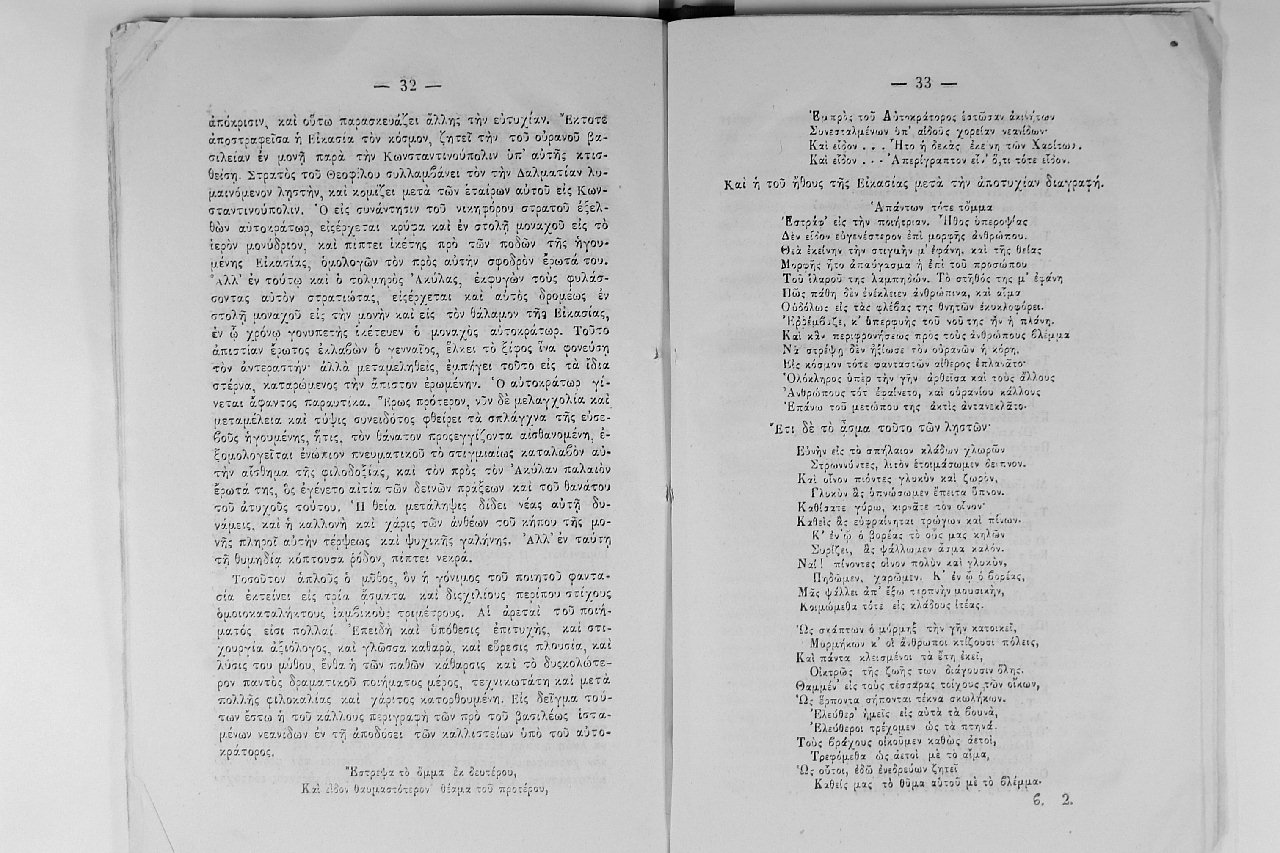 — 32 —
ἀπόκρισιν, καὶ οὕτω παρασκευάζει ἄλλης τὴν εὐτυχίαν. Ἔκτοτε
ἀποστραφεῖσα ἡ Εἰκασία τὸν κόσμον, ζητεῖ τὴν τοῦ οὐρανοῦ βα-
σιλείαν ἐν μονῇ παρὰ τὴν Κωνσταντινούπολιν ὑπ' αὐτῆς κτισ-
θείσῃ. Στρατὸς τοῦ Θεοφίλου συλλαμβάνει τὸν τὴν Δαλματίαν λυ-
μαινόμενον λῃστὴν, καὶ κομίζει μετὰ τῶν ἑταίρων αὐτοῦ εἰς Κων-
σταντινούπολιν. Ὁ εἰς συνάντησιν τοῦ νικηφόρου στρατοῦ ἐξελ-
θὼν αὐτοκράτωρ, εἰςέρχεται κρύφα καὶ ἐν στολῇ μοναχοῦ εἰς τὸ
ἱερὸν μονύδριον, καὶ πίπτει ἱκέτης πρὸ τῶν ποδῶν τῆς ἡγου-
μένης Εἰκασίας, ὁμολογῶν τὸν πρὸς αὐτὴν σφοδρὸν ἔρωτά του.
Ἀλλ' ἐν τούτῳ καὶ ὁ τολμηρὸς Ἀκύλας, ἐκφυγὼν τοὺς φυλάσ-
σοντας αὐτὸν στρατιώτας, εἰςέρχεται καὶ αὐτὸς δρομέως ἐν
στολῇ μοναχοῦ εἰς τὴν μονὴν καὶ εἰς τὸν θάλαμον τῆς Εἰκασίας,
ἐν ᾧ χρόνῳ γονυπετὴς ἱκέτευεν ὁ μοναχὸς αὐτοκράτωρ. Τοῦτο
ἀπιστίαν ἔρωτος ἐκλαβὼν ὁ γενναῖος, ἕλκει τὸ ξίφος ἵνα φονεύσῃ
τὸν ἀντεραστήν· ἀλλὰ μεταμεληθεὶς, ἐμπήγει τοῦτο εἰς τὰ ἴδια
στέρνα, καταρώμενος τὴν ἄπιστον ἐρωμένην. Ὁ αὐτοκράτωρ γί-
νεται ἄφαντος παραυτίκα. Ἔρως πρότερον, νῦν δὲ μελαγχολία καὶ
μεταμέλεια καὶ τύψις συνειδότος φθείρει τὰ σπλάγχνα τῆς εὐσε-
βοῦς ἡγουμένης, ἥτις, τὸν θάνατον προςεγγίζοντα αἰσθανομένη, ἐ-
ξομολογεῖται ἐνώπιον πνευματικοῦ τὸ στιγμιαίως καταλαβὸν αὐ-
τὴν αἴσθημα τῆς φιλοδοξίας, καὶ τὸν πρὸς τὸν Ἀκύλαν παλαιὸν
ἔρωτά της, ὃς ἐγένετο αἰτία τῶν δεινῶν πράξεων καὶ τοῦ θανάτου
τοῦ ἀτυχοῦς τούτου. Ἡ θεία μετάληψις δίδει νέας αὐτῇ δυ-
νάμεις, καὶ ἡ καλλονὴ καὶ χάρις τῶν ἀνθέων τοῦ κήπου τῆς μο-
νῆς πληροῖ αὐτὴν τέρψεως καὶ ψυχικῆς γαλήνης. Ἀλλ' ἐν ταύτῃ
τῇ θυμηδίᾳ κόπτουσα ῥόδον, πίπτει νεκρά.
Τοσοῦτον ἁπλοῦς ὁ μῦθος, ὃν ἡ γόνιμος τοῦ ποιητοῦ φαντα-
σία ἐκτείνει εἰς τρία ἄσματα καὶ διςχιλίους περίπου στίχους
ὁμοιοκαταλήκτους ἰαμβικοὺς τριμέτρους. Αἱ ἀρεταὶ τοῦ ποιή-
ματός εἰσι πολλαί. Ἐπειδὴ καὶ ὑπόθεσις ἐπιτυχὴς, καὶ στι-
χουργία ἀξιόλογος, καὶ γλῶσσα καθαρὰ, καὶ εὕρεσις πλουσία, καὶ
λύσις τοῦ μύθου, ἔνθα ἡ τῶν παθῶν κάθαρσις καὶ τὸ δυσκολώτε-
ρον παντὸς δραματικοῦ ποιήματος μέρος, τεχνικωτάτη καὶ μετὰ
πολλῆς φιλοκαλίας καὶ χάριτος κατορθουμένη. Εἰς δεῖγμα τού-
των ἔστω ἡ τοῦ κάλλους περιγραφὴ τῶν πρὸ τοῦ βασιλέως ἱστα-
μένων νεανίδων ἐν τῇ ἀποδόσει τῶν καλλιστείων ὑπὸ τοῦ αὐτο-
κράτορος.
Ἔστρεψα τὸ ὄμμα ἐκ δευτέρου,
Καὶ εἶδον θαυμαστότερον θέαμα τοῦ προτέρου,
— 33 —
Ἐμπρὸς τοῦ Αὐτοκράτορος ἑστῶσαν ἀκινήτων
Συνεσταλμένων ὑπ' αἰδοῦς χορείαν νεανίδων·
Καὶ εἶδον . . . Ἦτο ἡ δεκὰς ἐκείνη τῶν Χαρίτων.
Καὶ εἶδον . . . Ἀπερίγραπτον εἶν' ὅ,τι τότε εἶδον.
Καὶ ἡ τοῦ ἤθους τῆς Εἰκασίας μετὰ τὴν ἀποτυχίαν διαγραφή.
Ἁπάντων τότε τὄμμα
Ἐστράφ' εἰς τὴν ποιήτριαν. Ἦθος ὑπεροψίας
Δὲν εἶδον εὐγενέστερον ἐπὶ μορφῆς ἀνθρώπου.
Θεὰ ἐκείνην τὴν στιγμὴν μ' ἐφάνη, καὶ τῆς θείας
Μορφῆς ἦτο ἀπαύγασμα ἡ ἐπὶ τοῦ προσώπου
Τοῦ ἱλαροῦ της λαμπηδών. Τὸ στῆθός της μ' ἐφάνη
Πῶς πάθη δὲν ἐνέκλειεν ἀνθρώπινα, καὶ αἷμα
Οὐδόλως εἰς τὰς φλέβας της θνητῶν ἐκυκλοφόρει.
Ἐῤῥέμβαζε, κ' ὑπερφυὴς τοῦ νοῦ της ἦν ἡ πλάνη.
Καὶ κἂν περιφρονήσεως πρὸς τοὺς ἀνθρώπους βλέμμα
Νὰ στρέψῃ δὲν ἠξίωσε τὸν οὐρανῶν ἡ κόρη.
Εἰς κόσμον τότε φανταστῶν αἰθέρος ἐπλανᾶτο·
Ὁλόκληρος ὑπὲρ τὴν γῆν ἀρθεῖσα καὶ τοὺς ἄλλους
Ἀνθρώπους τότ' ἐφαίνετο, καὶ οὐρανίου κάλλους
Ἐπάνω τοῦ μετώπου της ἀκτὶς ἀντανεκλᾶτο·
Ἔτι δὲ τὸ ᾆσμα τοῦτο τῶν λῃστῶν·
Εὐνὴν εἰς τὸ σπήλαιον κλάδων χλωρῶν
Στρωννύντες, λιτὸν ἑτοιμάσωμεν δεῖπνον.
Καὶ οἶνον πιόντες γλυκὺν καὶ ζωρὸν,
Γλυκὺν ἂς ὑπνώσωμεν ἔπειτα ὕπνον.
Καθίσατε γύρω, κιρνᾶτε τὸν οἶνον·
Καθεὶς ἂς εὐφραίνηται τρώγων καὶ πίνων·
Κ' ἐν ᾧ ὁ βορέας τὸ οὖς μας κηλῶν
Συρίζει, ἂς ψάλλωμεν ᾆσμα καλόν.
Ναί! πίνοντες οἶνον πολὺν καὶ γλυκὺν,
Πηδῶμεν, χαρῶμεν. Κ' ἐν ᾧ ὁ βορέας,
Μᾶς ψάλλει ἀπ' ἔξω τερπνὴν μουσικὴν,
Κοιμώμεθα τότε εἰς κλάδους ἰτέας.
Ὡς σκάπτων ὁ μύρμηξ τὴν γῆν κατοικεῖ,
Μυρμήκων κ' οἱ ἄνθρωποι κτίζουσι πόλεις,
Καὶ πάντα κλεισμένοι τὰ ἔτη ἐκεῖ,
Οἰκτρῶς τῆς ζωῆς των διάγουσιν ὅλης.
Θαμμέν' εἰς τοὺς τέσσαρας τοίχους τῶν οἴκων,
Ὡς ἕρποντα σήπονται τέκνα σκωλήκων.
Ἐλεύθερ' ἡμεῖς εἰς αὐτὰ τὰ βουνὰ,
Ἐλεύθεροι τρέχομεν ὡς τὰ πτηνά.
Τοὺς βράχους οἰκοῦμεν καθὼς ἀετοὶ,
Τρεφόμεθα ὡς ἀετοὶ μὲ τὸ αἷμα,
Ὡς οὗτοι, ἐδῶ ἐνεδρεύων ζητεῖ
Καθείς μας τὸ θῦμα αὑτοῦ μὲ τὸ βλέμμα·
ϐ. 2.